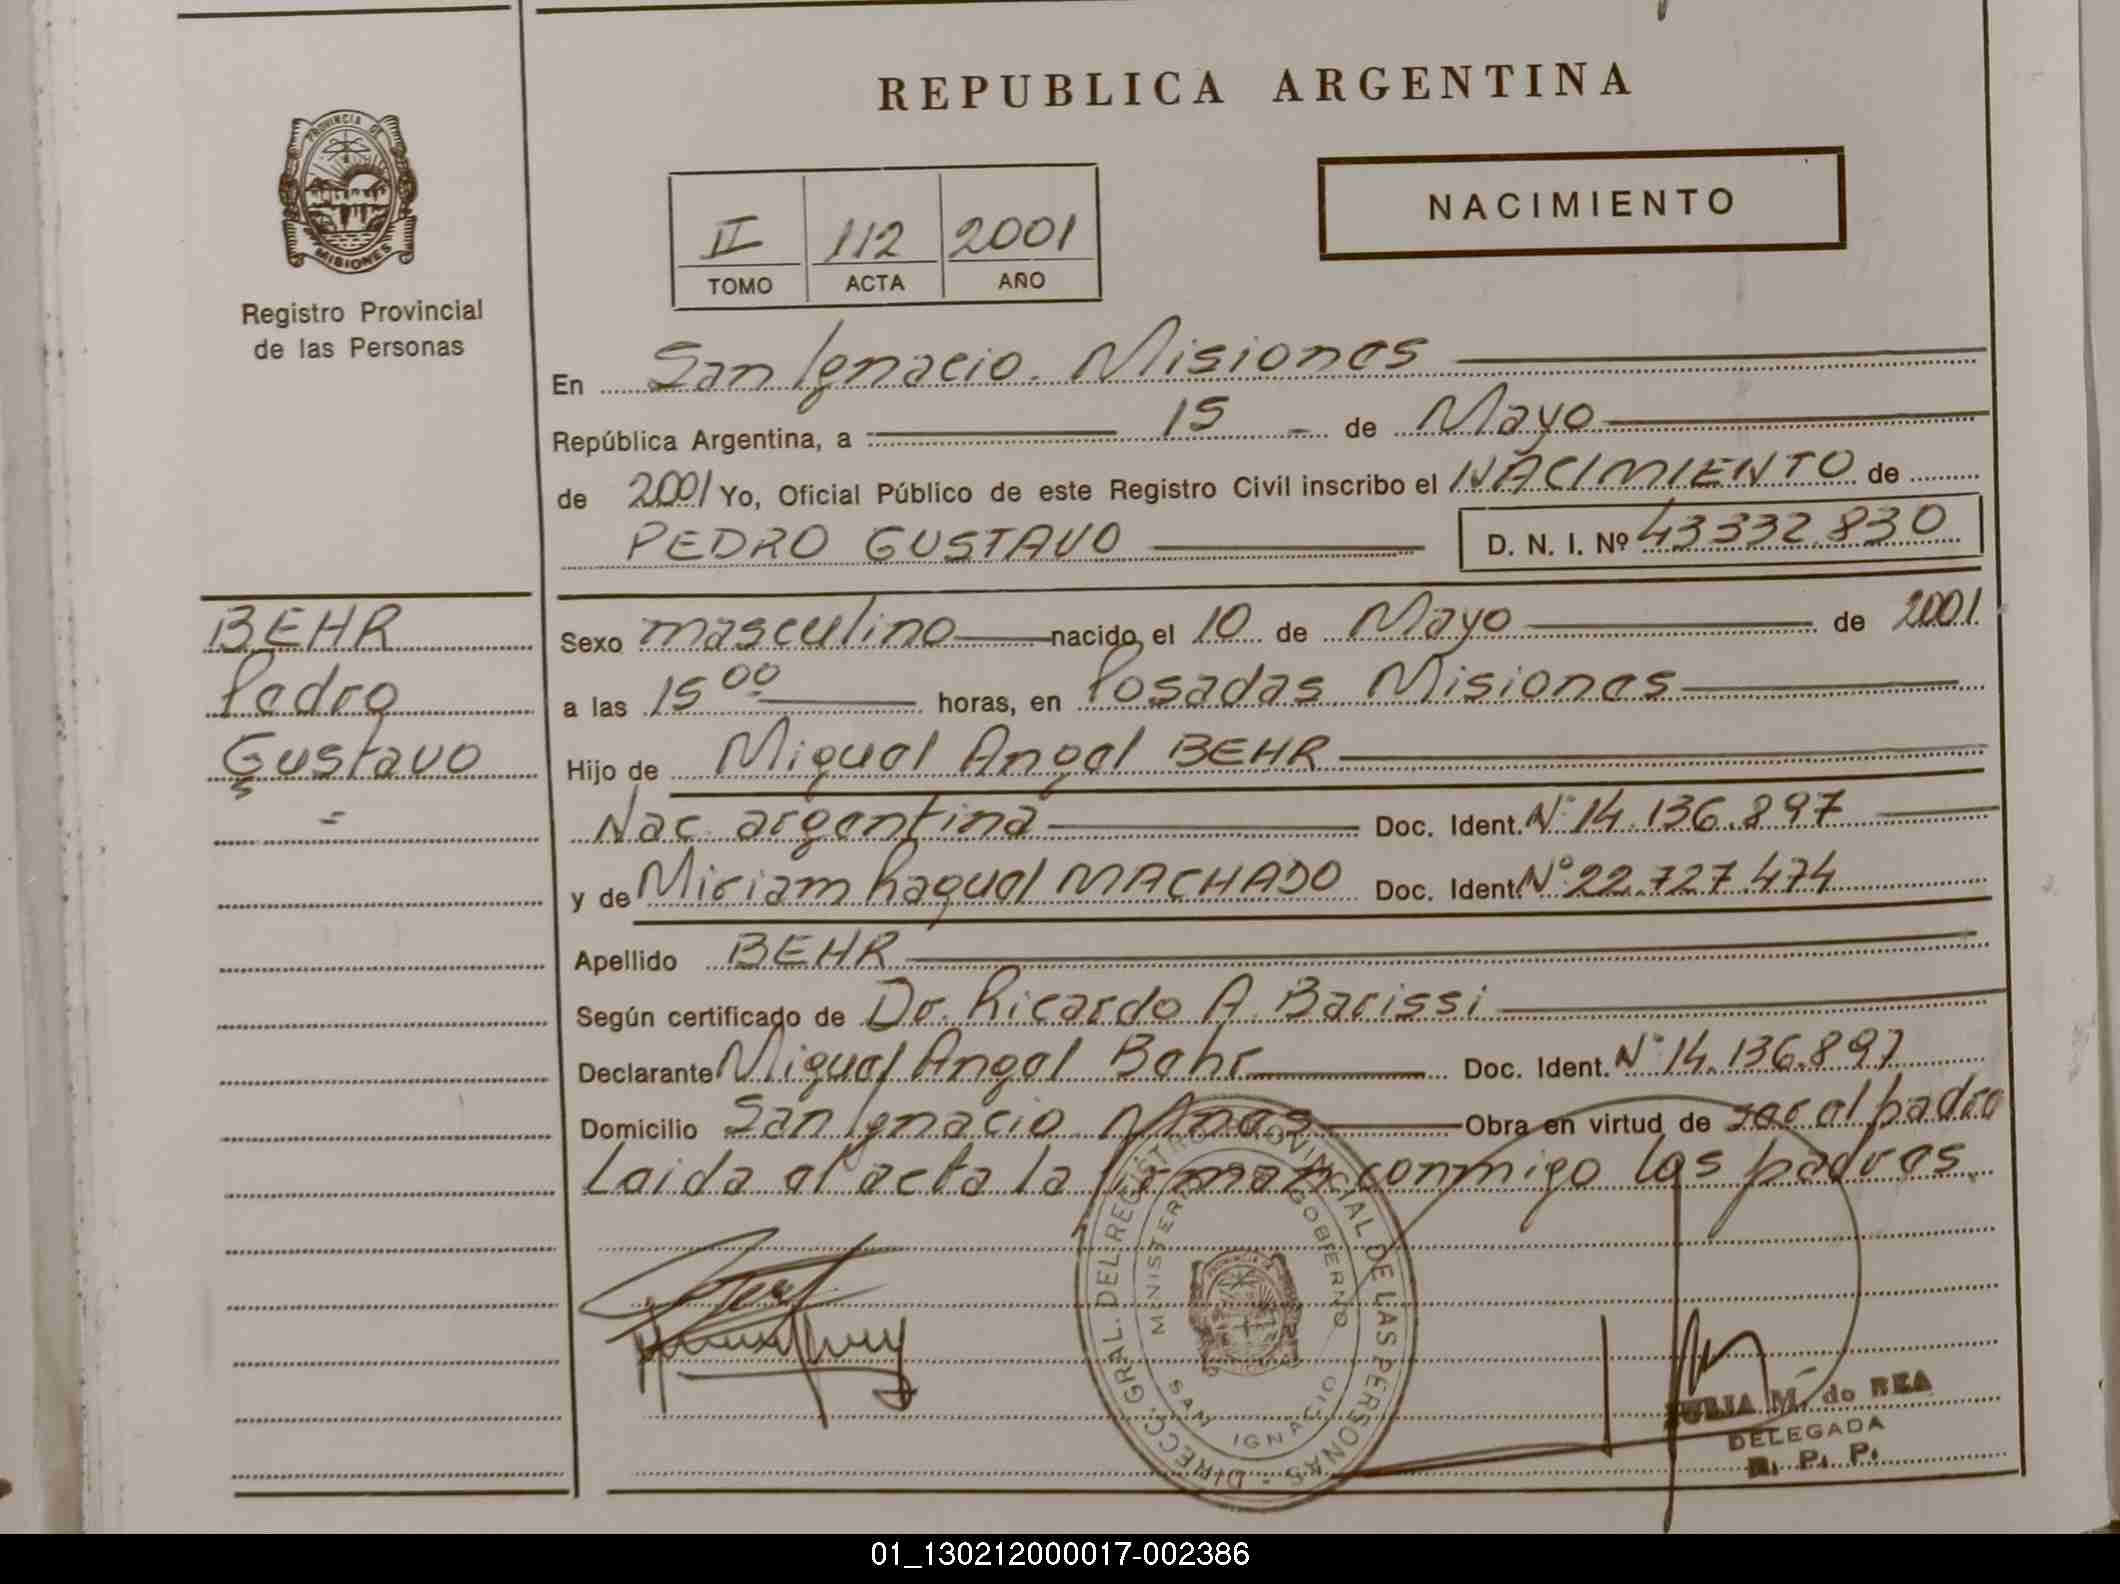 REPUBLICA ARGENTINA
PROVINCIA DE
MISIONES
Registro Provincial
de las Personas
NACIMIENTO
II 112 2001
TOMO ACTA AÑO
En San Ignacio. Misiones
República Argentina, a 15 - de Mayo
de 2001 Yo, Oficial Público de este Registro Civil inscribo el NACIMIENTO de
PEDRO GUSTAVO D. N. I. Nº 43332.830
BEHR
Pedro
Gustavo
=
Sexo masculino nacido el 10 de Mayo de 2001
a las 15 00 horas, en Posadas Misiones
Hijo de Miguel Angel BEHR
Nac. argentina Doc. Ident. Nº 14.136.897
y de Miriam Raquel MACHADO Doc. Ident. Nº 22.727.474
Apellido BEHR
Según certificado de Dr. Ricardo A. Barissi
Declarante Miguel Angel Behr Doc. Ident. Nº 14.136.897
Domicilio San Ignacio Mnes Obra en virtud de ser el padre
Leida el acta la firman conmigo los padres.
DIRECC. GRAL. DEL REGISTRO PROVINCIAL DE LAS PERSONAS
MINISTERIO GOBIERNO
SAN IGNACIO
JULIA M. de REA
DELEGADA
R. P. P.
01_130212000017-002386